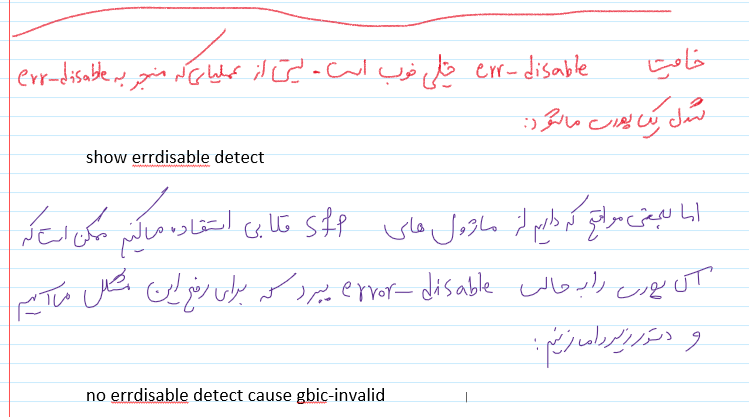 خاصیت err-disable خیلی خوب است. لیستی از عملیاتی که منجر به err-disable
شدن یک پورت میشود:
show errdisable detect
اما بعضی مواقع که داریم از ماژول های SFP تقلبی استفاده میکنیم ممکن است که
آن پورت را به حالت error-disable ببرد که برای رفع این مشکل می آییم
و دستور زیر را میزنیم:
no errdisable detect cause gbic-invalid